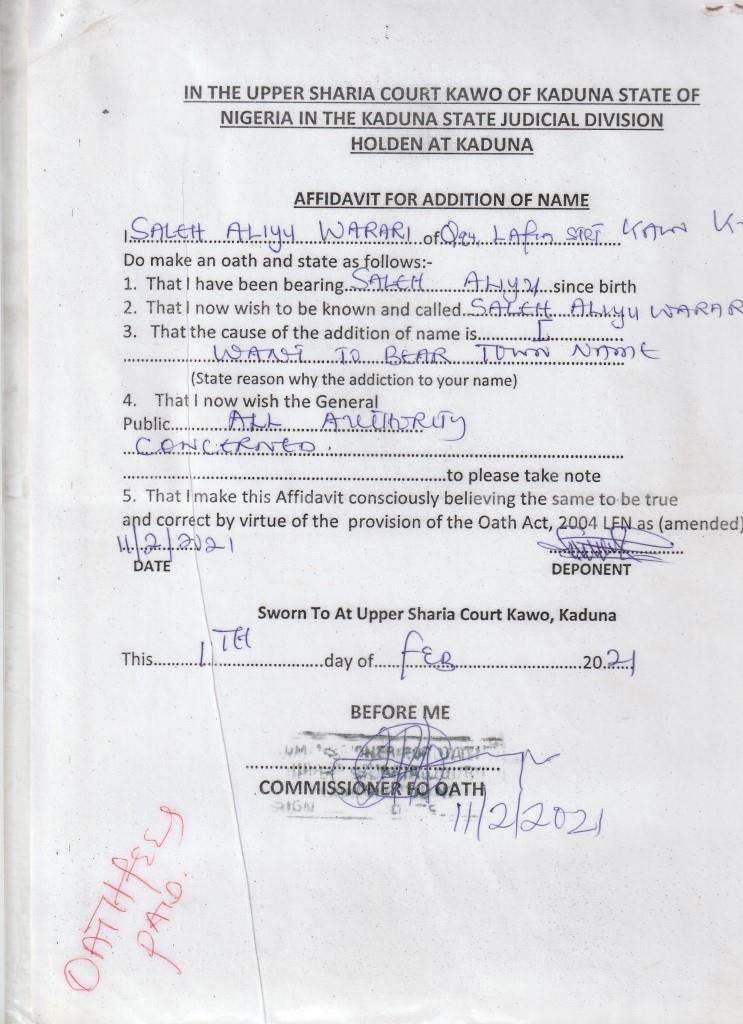 IN THE UPPER SHARIA COURT KAWO OF KADUNA STATE OF
NIGERIA IN THE KADUNA STATE JUDICIAL DIVISION
HOLDEN AT KADUNA
AFFIDAVIT FOR ADDITION OF NAME
I SALEH ALIYU WARARI of Lafia KAWO K
Do make an oath and state as follows:-
1. That I have been bearing SALEH ALIYU since birth
2. That I now wish to be known and called SALEH ALIYU WARAR
3. That the cause of the addition of name is I
WANT TO BEAR TOWN NAME
(State reason why the addiction to your name)
4. That I now wish the General
Public ALL AUTHORITY
CONCERNED.
to please take note
5. That I make this Affidavit consciously believing the same to be true
and correct by virtue of the provision of the Oath Act, 2004 LFN as (amended)
11/2/2021
DATE DEPONENT
Sworn To At Upper Sharia Court Kawo, Kaduna
This 11TH day of FEB 2021
BEFORE ME
COMMISSIONER FO OATH
11/2/2021
OATH FEES
PAID.